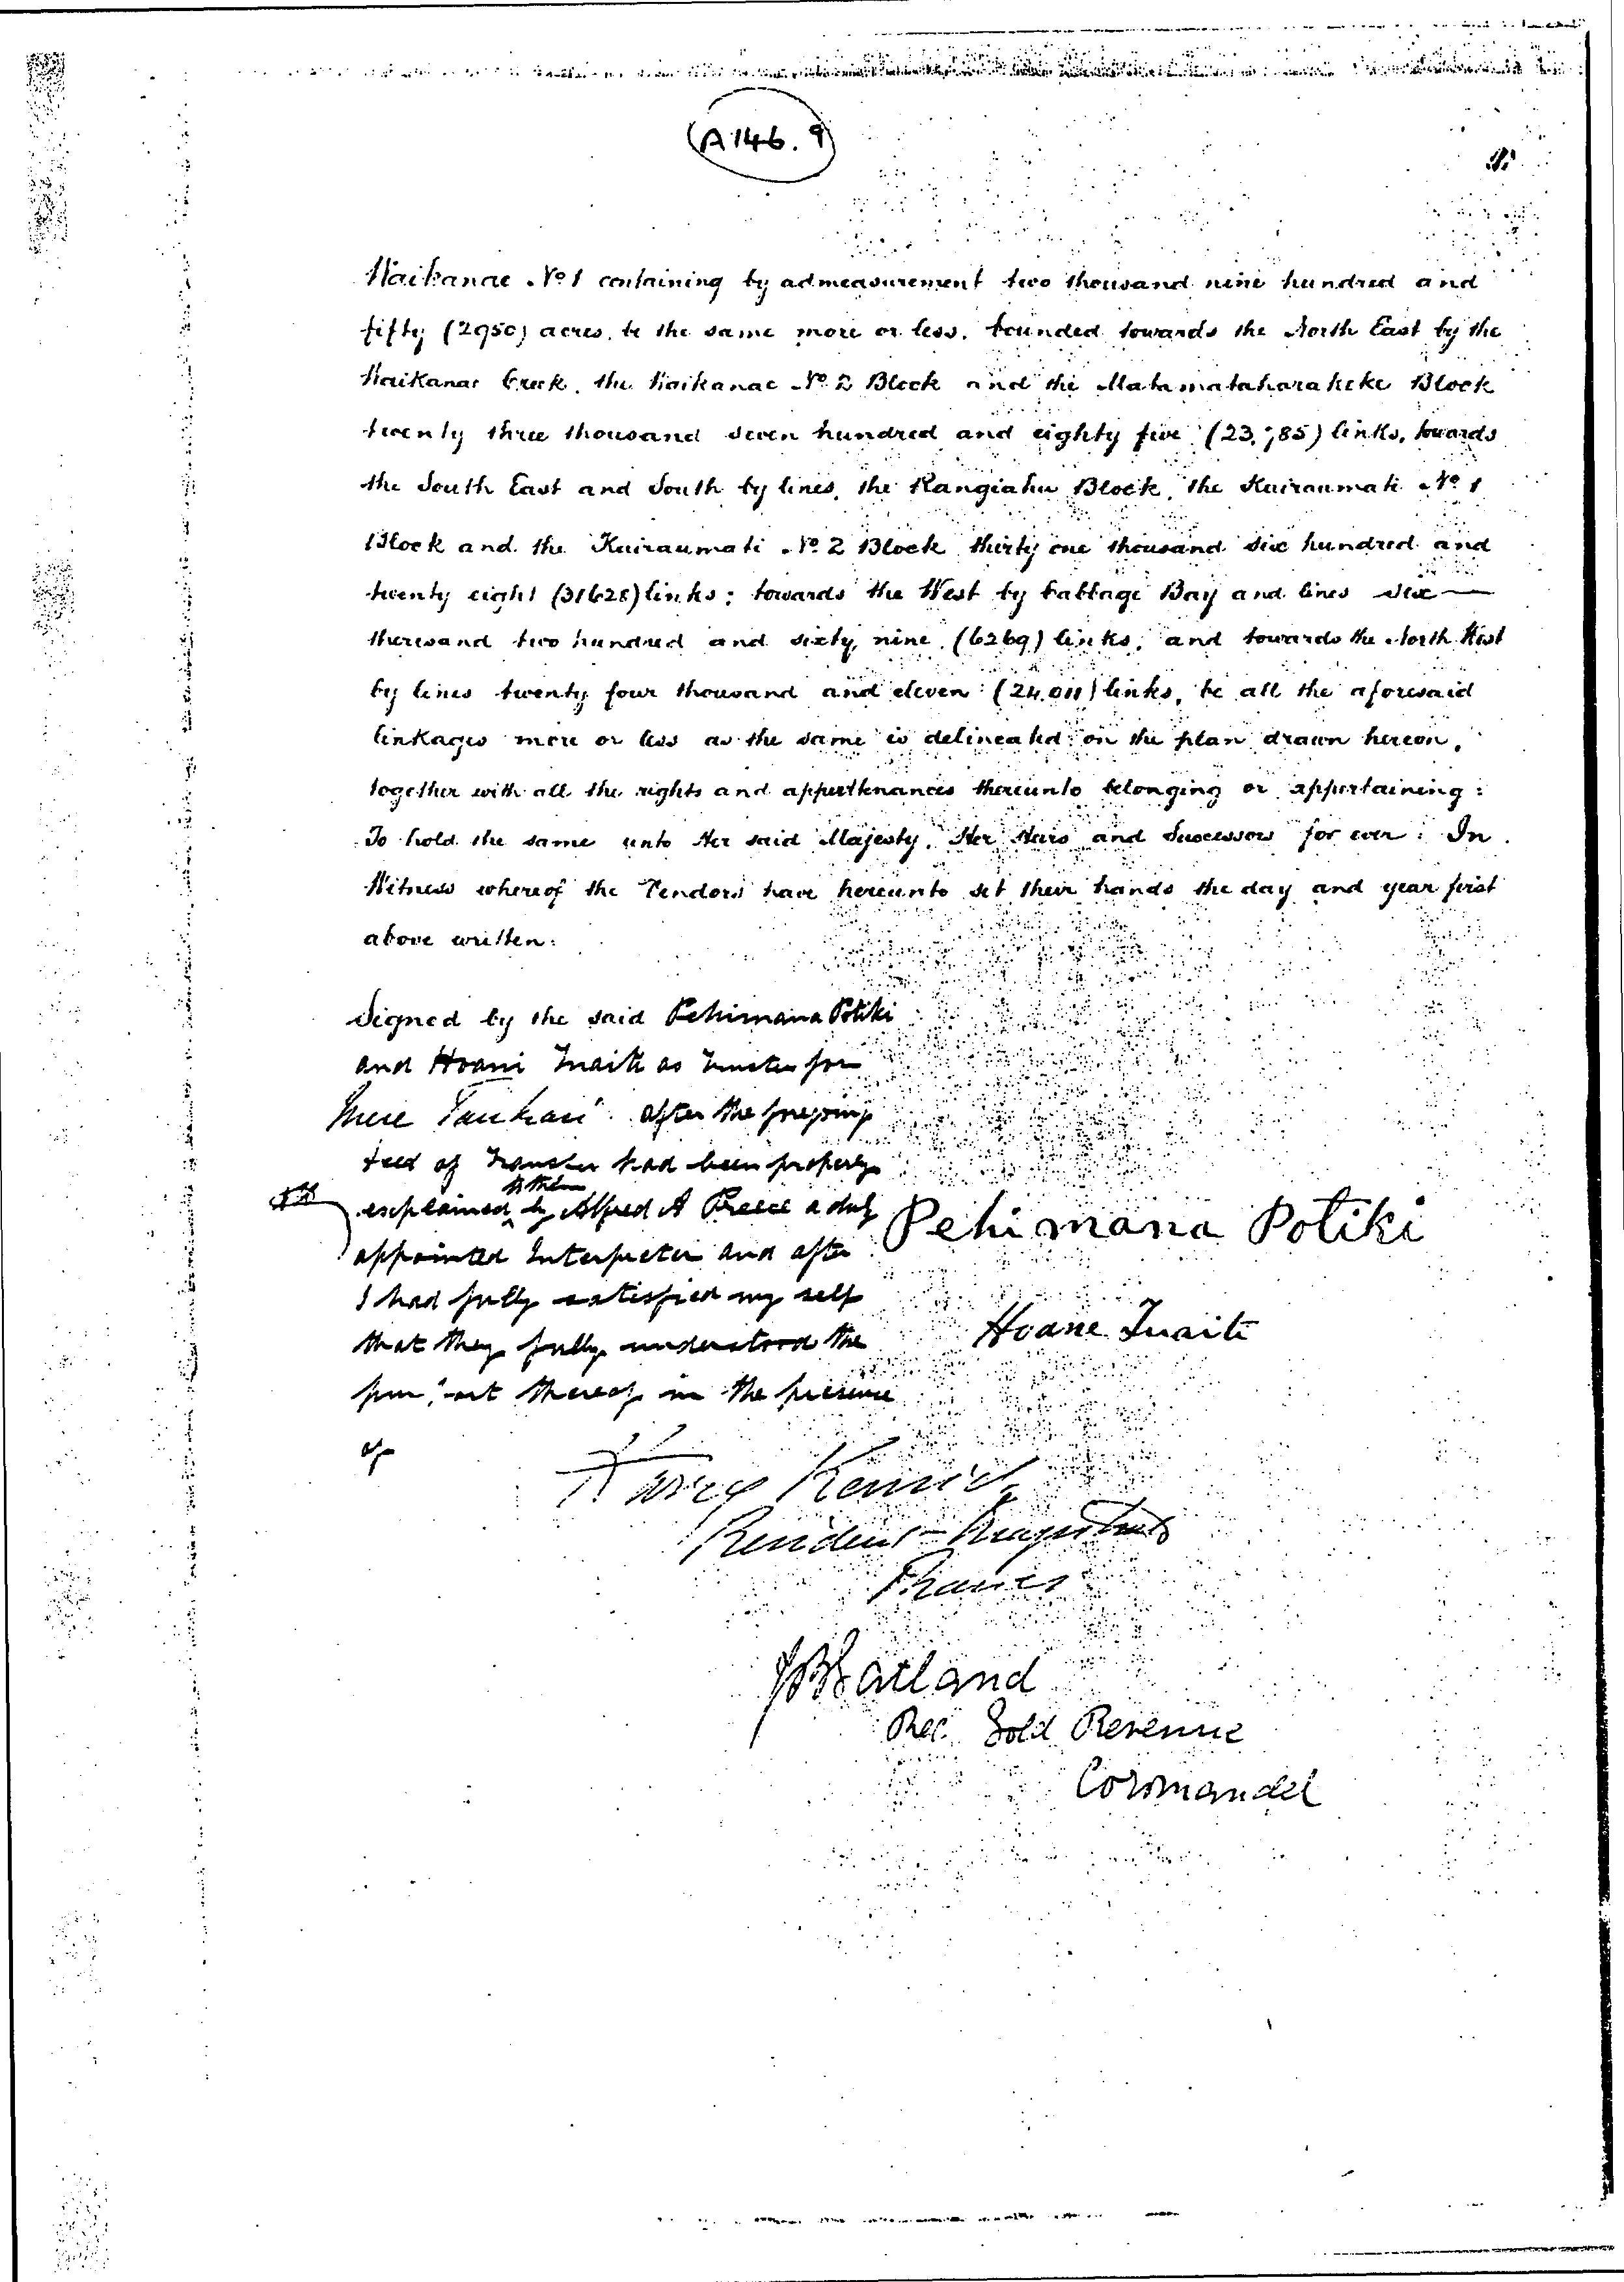 A146.9
Waikanae No 1 containing by admeasurement two thousand nine hundred and
fifty (2950) acres, be the same more or less, bounded towards the North East by the
Waikanae Creek, the Waikanae No 2 Block and the Matamataharakeke Block
twenty three thousand seven hundred and eighty five (23,785) links, towards
the South East and South by lines, the Rangiahu Block, the Kuiraumati No 1
Block and the Kuiraumati No 2 Block thirty one thousand six hundred and
twenty eight (31628) links; towards the West by Cabbage Bay and lines six
thousand two hundred and sixty nine (6269) links, and towards the North West
by lines twenty four thousand and eleven (24.011) links, be all the aforesaid
linkages more or less as the same is delineated on the plan drawn hereon,
together with all the rights and appurtenances thereunto belonging or appertaining:
To hold the same unto Her said Majesty, Her Heirs and Successors for ever: In
Witness whereof the Vendors have hereunto set their hands the day and year first
above written:
Signed by the said Pehimana Potiki
and Hoani Tuaiti as Trustee for
Mere Taukari after the foregoing
deed of Transfer had been properly
to them
explained by Alfred A Preece a duly
appointed Interpreter and after
Pehimana Potiki
I had fully satisfied my self
that they fully understood the
Hoane Tuaiti
purport thereof in the presence
of
Harry Kenrick
Resident Magistrate
Thames
Hartland
Rec. Gold Revenue
Coromandel